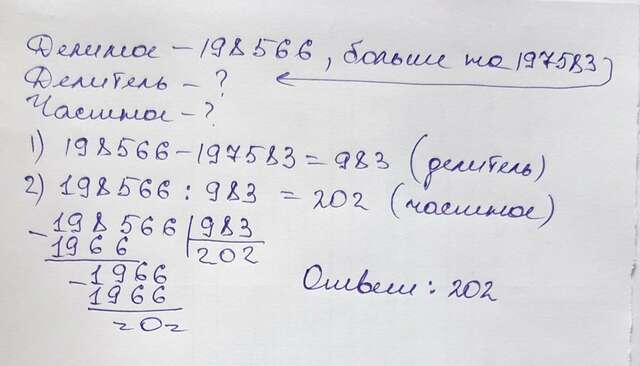 Делимое – 198566, больше на 197583
Делитель – ?
Частное – ?
1) 198566 – 197583 = 983 (делитель)
2) 198566 : 983 = 202 (частное)
– 198566 | 983
1966 202
– 1966
1966
202
Ответ: 202